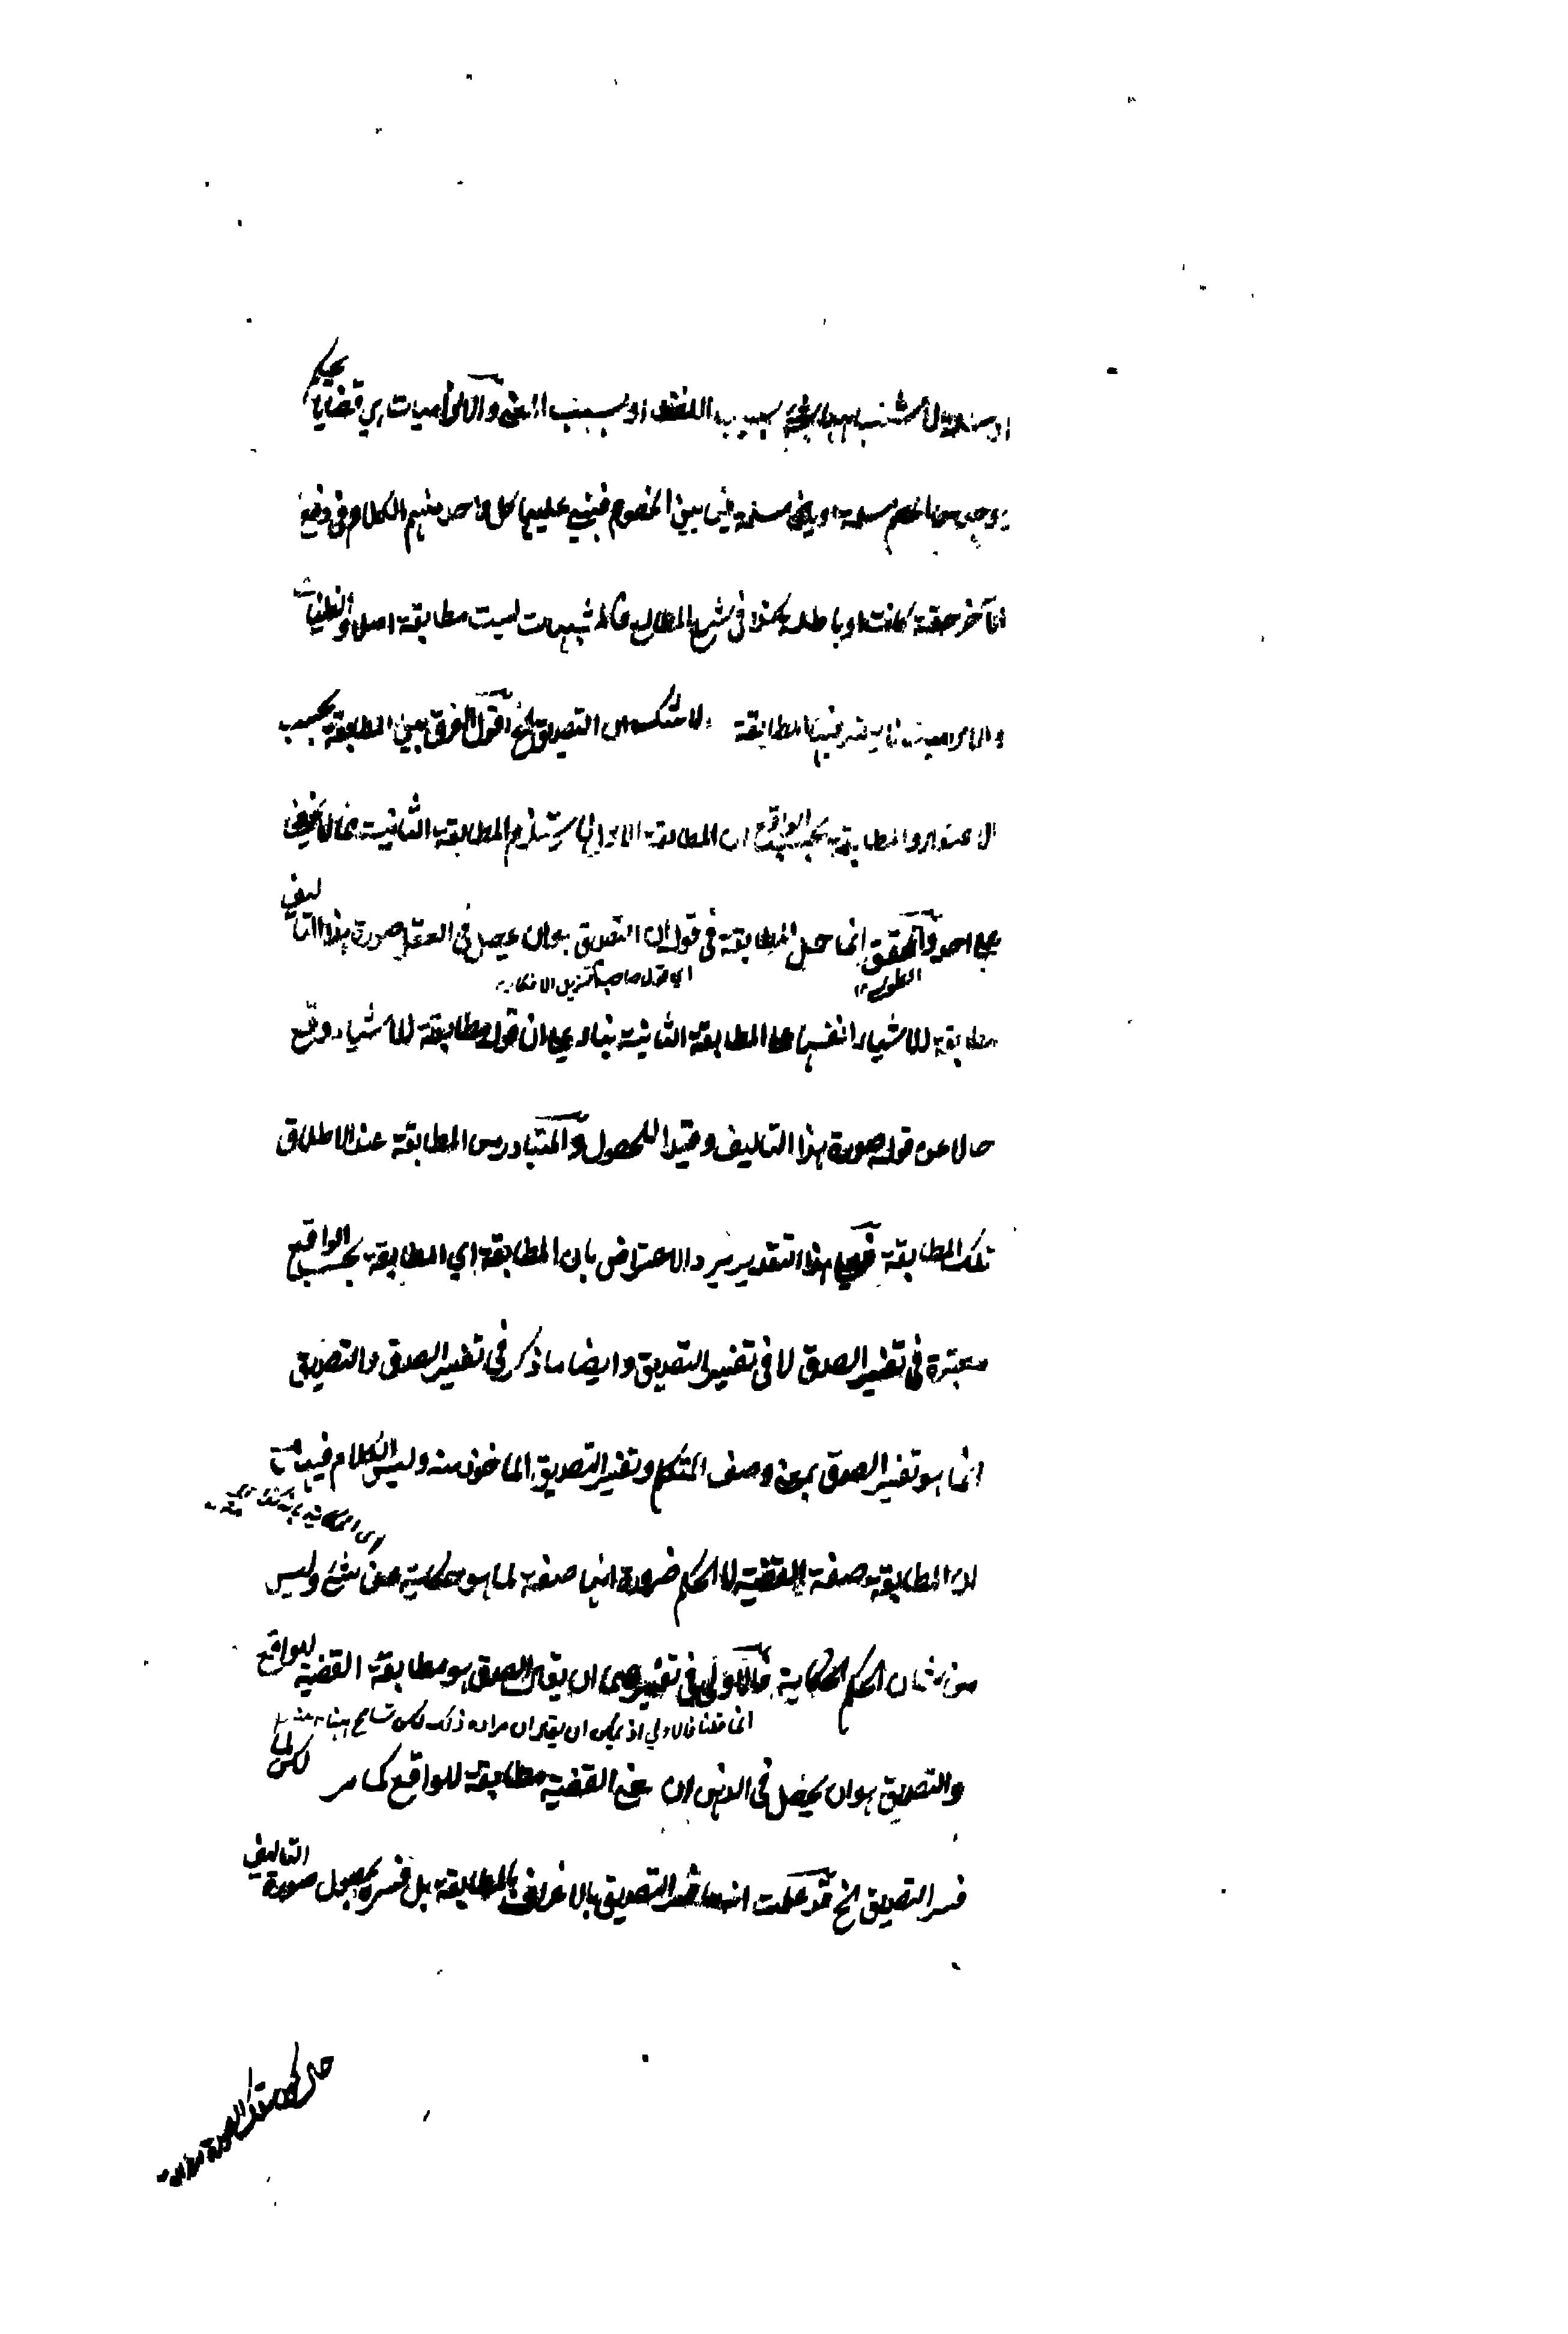 او بسبب اللفظ او بسبب المعنى والالزاميات هي قضايا يحكم
من الخصم مسلمة او يكون مسلمة فيما بين الخصوم فيبني عليها كل واحد منهم الكلام في دفع
الآخر حقة كانت او باطلة كذا في شرح المطالع فالمشبهات ليست مطابقة اصلا والظنيات
والالزاميات لا يعتبر فيها المطابقة ولا شك ان التصديق الخ اقول الفرق بين المطابقة بحسب
الاعتبار والمطابقة بحسب الواقع ان المطابقة الاولى لا تستلزم المطابقة الثانية مما لا يخفى
على احد والمحقق انما حمل المطابقة في قوله ان التصديق هو ان يحصل في العقل صورة هذا التاليف
الطوسي
اي قول صاحب تنزيل الافكار
مطابقة للاشياء انفسها على المطابقة الثانية بناء على ان قوله مطابقة للاشياء وقع
حالا عن قوله صورة هذا التاليف وقيدا للحصول والمتبادر من المطابقة عند الاطلاق
تلك المطابقة فعلى هذا التقدير يرد الاعتراض بان المطابقة اي المطابقة بحسب الواقع
معتبرة في تفسير الصدق لا في تفسير التصديق وايضا ما ذكر في تفسير الصدق والتصديق
انما هو تفسير الصدق بمعنى وصف المتكلم وتفسير التصديق الماخوذ منه وليس الكلام فيهما
لان المطابقة صفة القضية لا الحكم ضرورة انها صفة لما هو حكاية عن شئ وليس
من شان الحكم الحكاية فالاولى في تفسيرهما ان يقال الصدق هو مطابقة القضية للواقع
انما قلنا فالاولى اذ يمكن ان يقال ان مراده ذلك لكن تسامح
والتصديق هو ان يحصل في الذهن ان القضية مطابقة للواقع كما مر لكن لما
فسر التصديق الخ قد علمت انه ما فسر التصديق بالاعتراف بالمطابقة بل فسره بحصول صورة التاليف